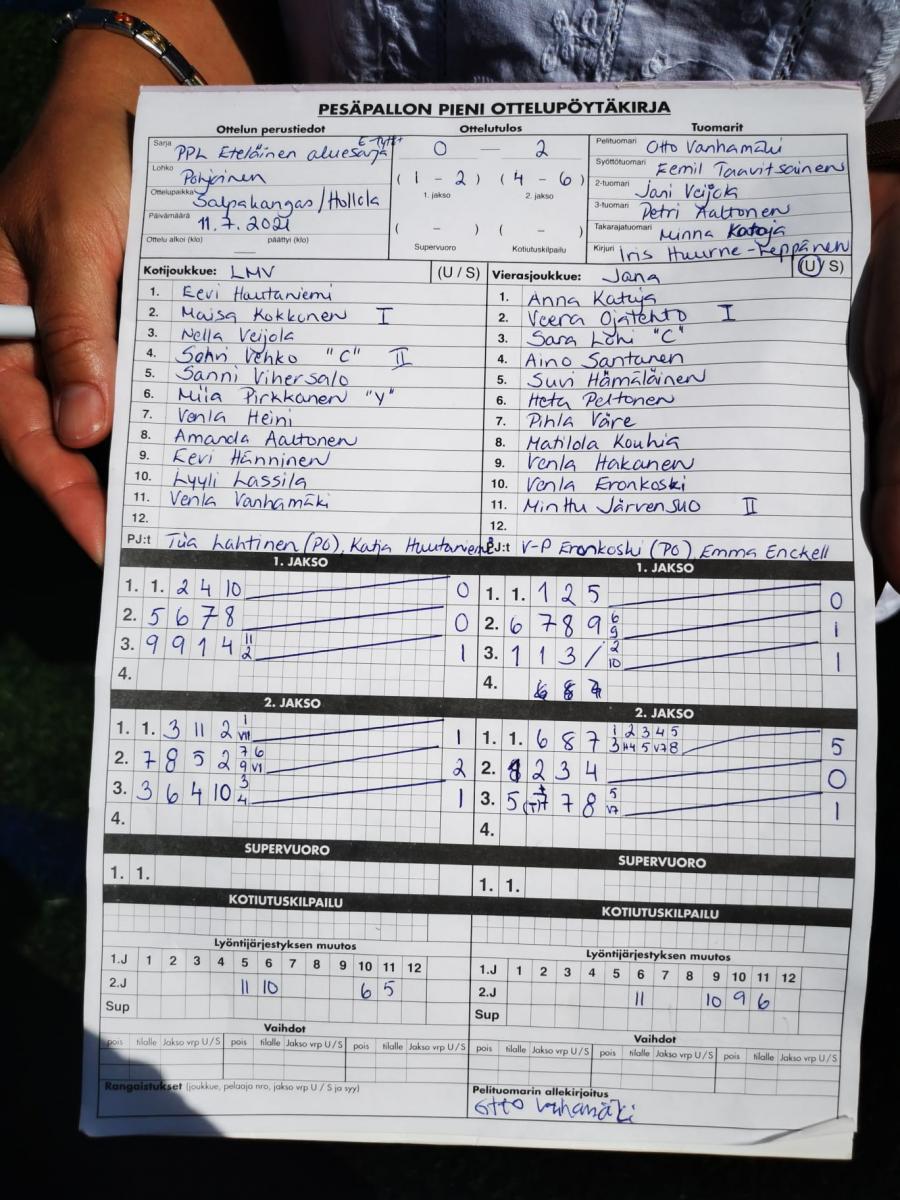 PESÄPALLON PIENI OTTELUPÖYTÄKIRJA
Ottelun perustiedot
Sarja PPL Eteläinen aluesarja
Lohko Pohjoinen
Ottelupaikka Salpakangas/Hollola
Päivämäärä 11.7.2021
Ottelu alkoi (klo) päättyi (klo)
Ottelutulos
0 — 2
(1 - 2) (4 - 6)
1. jakso 2. jakso
( - ) ( - )
Supervuoro Kotiutuskilpailu
Tuomarit
Pelituomari Otto Vanhamäki
Syöttötuomari Eemil Taavitsainen
2-tuomari Jani Veijola
3-tuomari Petri Aaltonen
Takarajatuomari Minna Kataja
Kirjuri Iris Huurne-Leppänen
Kotijoukkue: LMV (U / S)
1. Eevi Hautaniemi
2. Maisa Kokkonen I
3. Nella Veijola
4. Vehko "C" II
5. Sanni Vihersalo
6. Miia Pirkkanen "Y"
7. Venla Heini
8. Amanda Aaltonen
9. Eevi Hänninen
10. Lyyli Lassila
11. Venla Vanhamäki
12.
PJ:t Tiia Lahtinen (PO), Katja Hautaniemi
Vierasjoukkue: Jana (U / S)
1. Anna Kataja
2. Veera Ojatehto I
3. Sara Lohi "C"
4. Aino Santanen
5. Suvi Hämäläinen
6. Heta Peltonen
7. Pihla Väre
8. Matilda Kouhia
9. Venla Hakanen
10. Venla Eronkoski
11. Minttu Järvensuo II
12.
PJ:t V-P Eronkoski (PO), Emma Enckell
1. JAKSO
1. 1. 2 4 10 0
2. 5 6 7 8 0
3. 9 9 1 4 11 2 1
4.
1. JAKSO
1. 1. 1 2 5 0
2. 6 7 8 9 6 9 1
3. 1 1 3 / 2 10 1
4.
2. JAKSO
1. 1. 3 11 2 1 VII 1
2. 7 8 5 2 7 6 9 VI 2
3. 3 6 4 10 3 4 1
4.
2. JAKSO
1. 1. 6 8 7 1 2 3 4 5 5
2. 2 3 4 0
3. 5 7 8 5 V7 1
4.
SUPERVUORO
1. 1.
SUPERVUORO
1. 1.
KOTIUTUSKILPAILU
KOTIUTUSKILPAILU
Lyöntijärjestyksen muutos
1.J 1 2 3 4 5 6 7 8 9 10 11 12
2.J 11 10 6 5
Sup
Lyöntijärjestyksen muutos
1.J 1 2 3 4 5 6 7 8 9 10 11 12
2.J 11 10 9 6
Sup
Vaihdot
pois tilalle Jakso vrp U / S pois tilalle Jakso vrp U / S pois tilalle Jakso vrp U / S
Vaihdot
pois tilalle Jakso vrp U / S pois tilalle Jakso vrp U / S pois tilalle Jakso vrp U / S
Rangaistukset (joukkue, pelaaja nro, jakso vrp U / S ja syy)
Pelituomarin allekirjoitus
Otto Vanhamäki